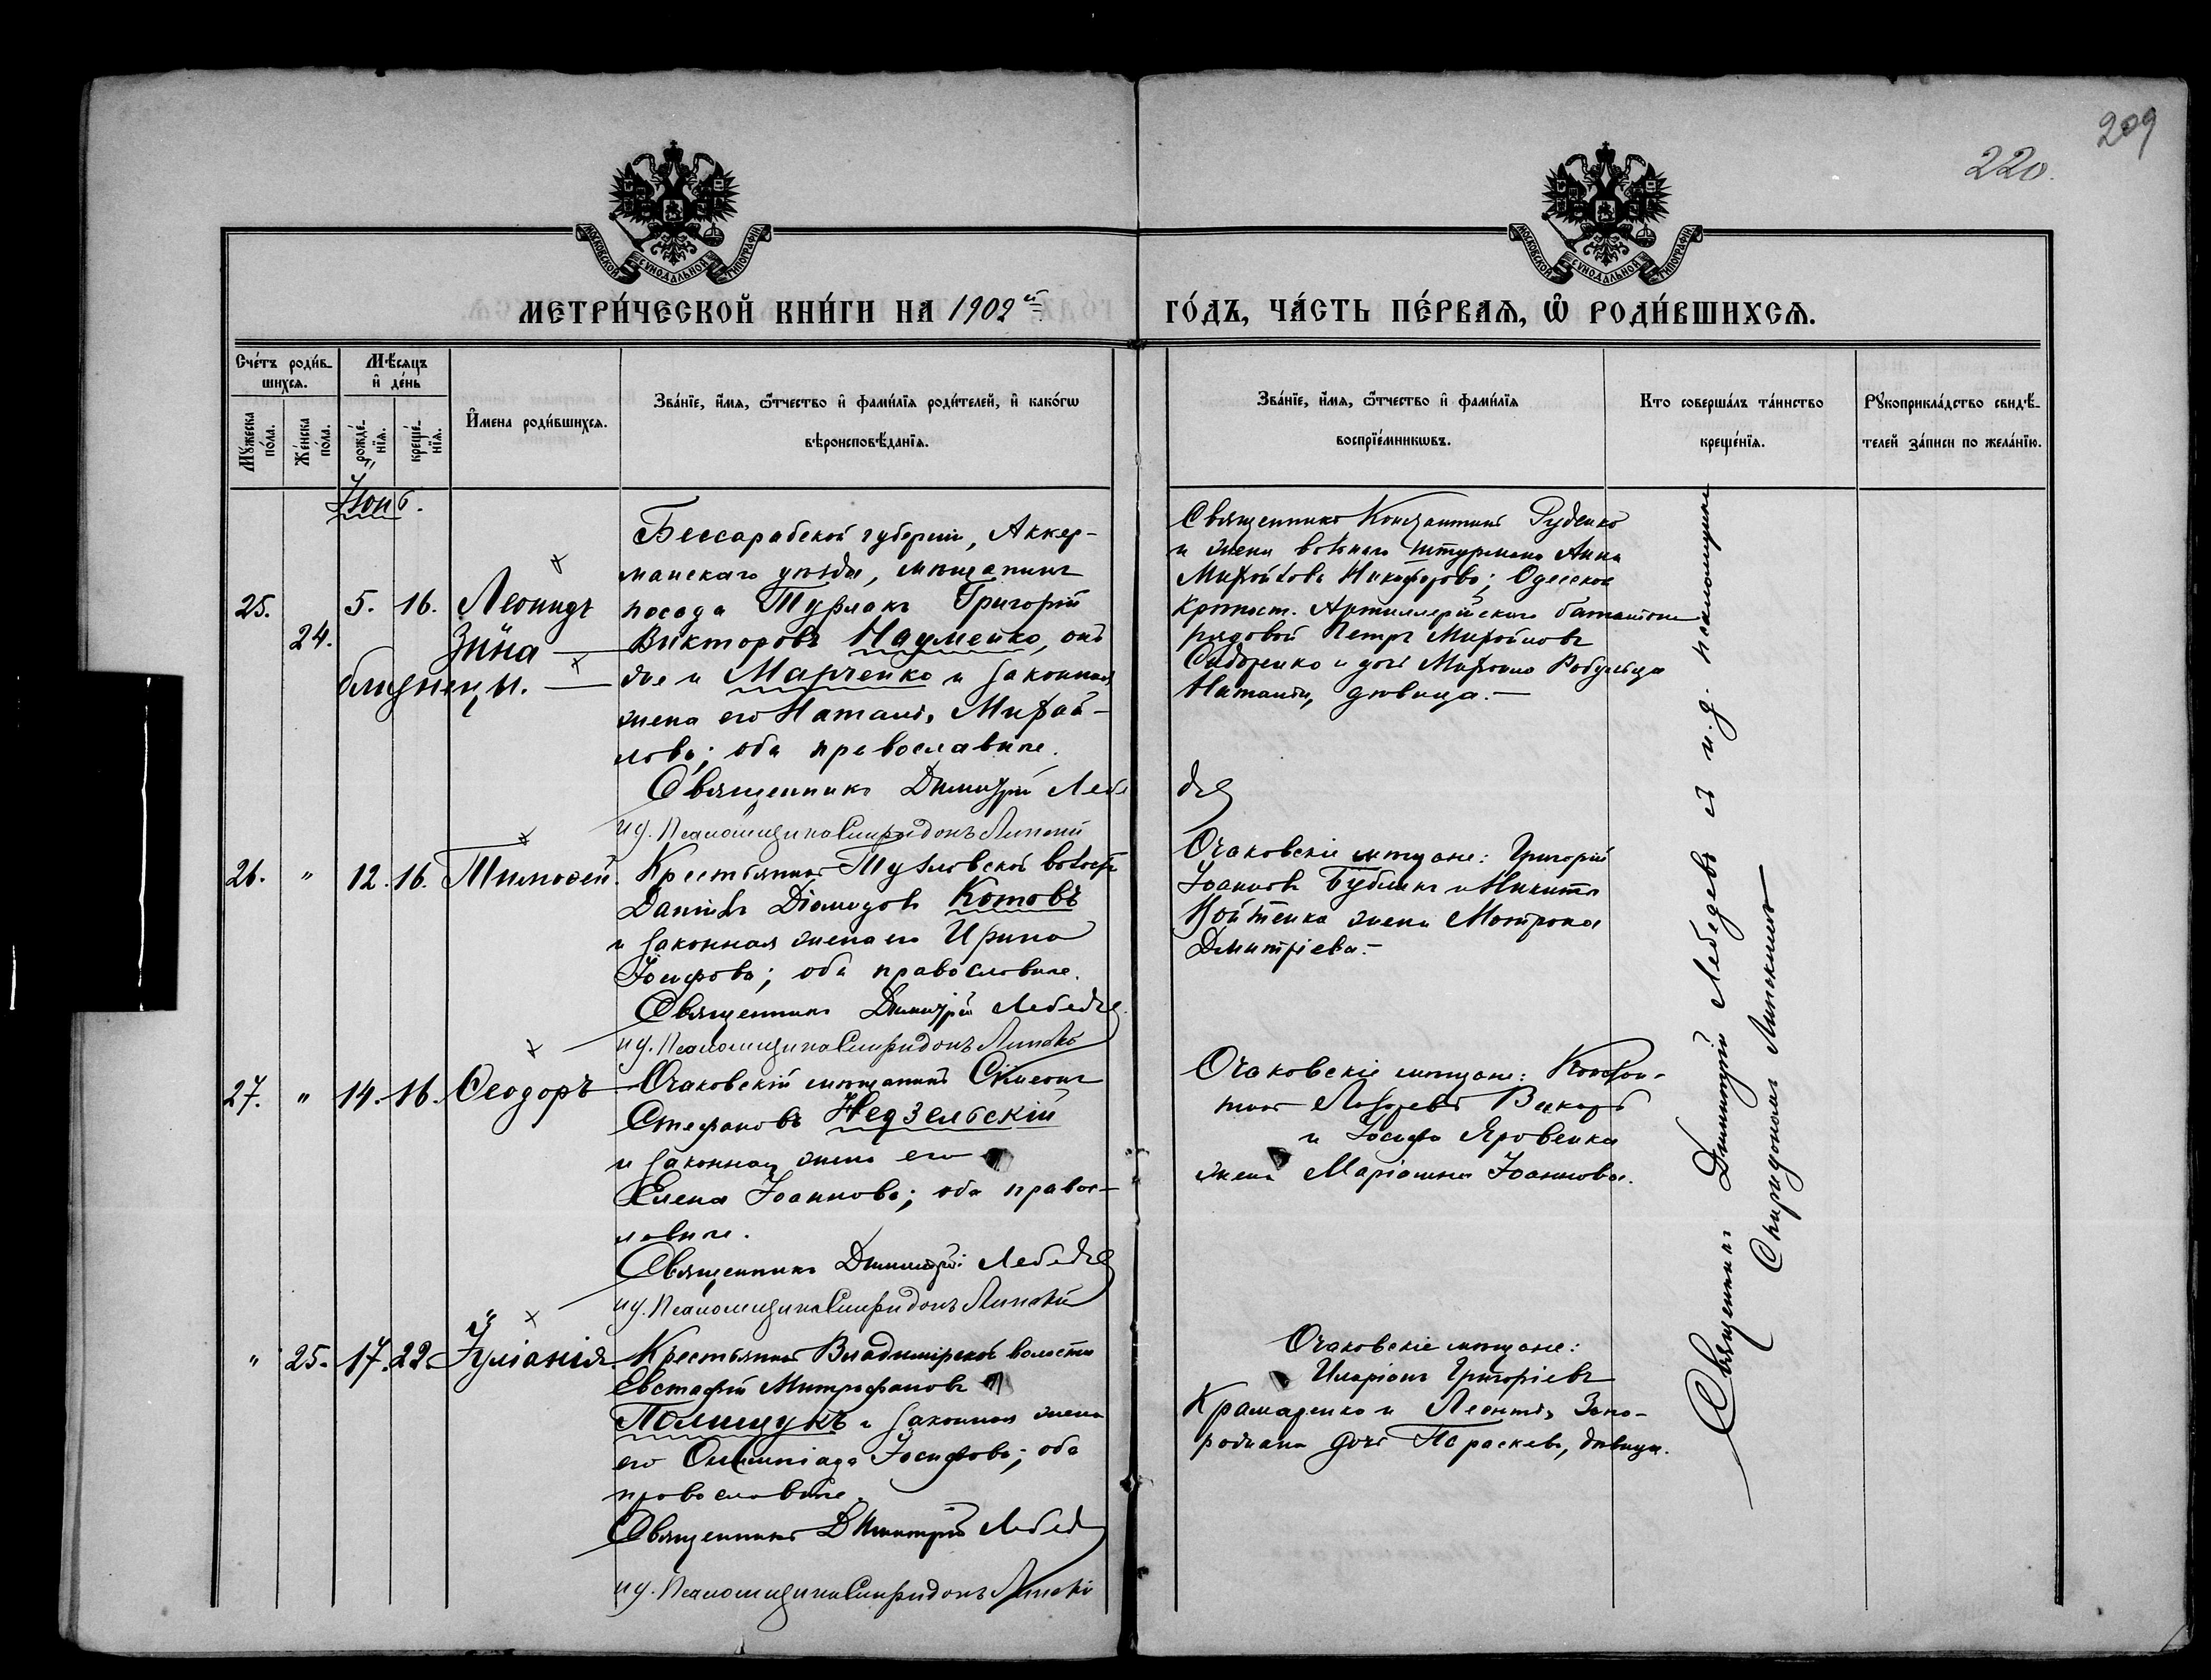 209
220.
МОСКОВСКОЙ СѴНОДАЛЬНОЙ ТИПОГРАФІИ
МОСКОВСКОЙ СѴНОДАЛЬНОЙ ТИПОГРАФІИ
МЕТРИ́ЧЕСКОЙ КНИ́ГИ НА 1902й
ГО́ДЪ, ЧА́СТЬ ПЕ́РВАѦ, Ѡ҆ РОДИ́ВШИХСѦ.
Сче́тъ роди́в-
шихсѧ.
Мѣ́сѧцъ
и҆ де́нь
Мꙋ́жеска
по́ла.
Же́нска
по́ла.
рожде́-
нїѧ.
креще́-
нїѧ.
И҆мена роди́вшихсѧ.
Зва́нїе, и҆́мѧ, ѻ҆́тчество и҆ фами́лїѧ роди́телей, и҆ како́гѡ
вѣроисповѣ́данїѧ.
Зва́нїе, и҆́мѧ, ѻ҆́тчество и҆ фами́лїѧ
воспрїе́мникѡвъ.
Кто соверша́лъ та́инство
креще́нїѧ.
Рꙋкоприкла́дство свидѣ́-
телей за́писи по жела́нїю.
Іюнь.
25.
24.
5. 16. Леонидъ
Зина
близнецы.
Бессарабской губерніи, Аккер-
манскаго уѣзда, мѣщанинъ
посада Турлакъ Григорій
Викторовъ Науменко, онъ
же и Марченко и законная
жена его Наталія Михай-
лова; оба православные.
Священникъ Димитрій Лебе
дев
и д. Псаломщика Спиридонъ Липскій
Священникъ Константинъ Руденко
и жена военнаго штурмана Анна
Михайлова Никифорова; Одесской
крѣпост. Артиллерійскаго баталіона
рядовой Петръ Михайловъ
Сидоренко и дочь Михаила
Наталія, дѣвица.—
26. " 12. 16. Тимоѳей.
Крестьянинъ Тузловской волости
Даніилъ Діомидовъ Котовъ
и законная жена его Ирина
Іосифова; оба православные.
Священникъ Димитрій Лебедев
и д. Псаломщика Спиридонъ Липскій
Очаковскіе мѣщане: Григорій
Іоанновъ Бубликъ и Никиты
Войтенка жена Матрона
Димитріева.—
27. " 14. 16. Ѳеодоръ
Очаковскій мѣщанинъ Симеонъ
Стефановъ Недзельскій
и законная жена его
Елена Іоаннова; оба правос-
лавные.
Священникъ Димитрій Лебедев
и д. Псаломщика Спиридонъ Липскій
Очаковскіе мѣщане: Констан-
тинъ Лазаревъ
и Іосифа Яровенка
жена Маріамна Іоаннова.
" 25. 17. 22. Іуліанія
Крестьянинъ Владимірской волости
Евстафій Митрофановъ
Полищукъ и законная жена
его Олимпіада Іосифова; оба
православные.
Священникъ Димитрій Лебедев
и д. Псаломщика Спиридонъ Липскій
Очаковскіе мѣщане:
Иларіонъ Григоріевъ
Крамаренко и Леонтія Запо-
рожана дочь Параскева, дѣвица.
Священникъ Димитрій Лебедевъ съ и. д. псаломщика
Спиридономъ Липскимъ